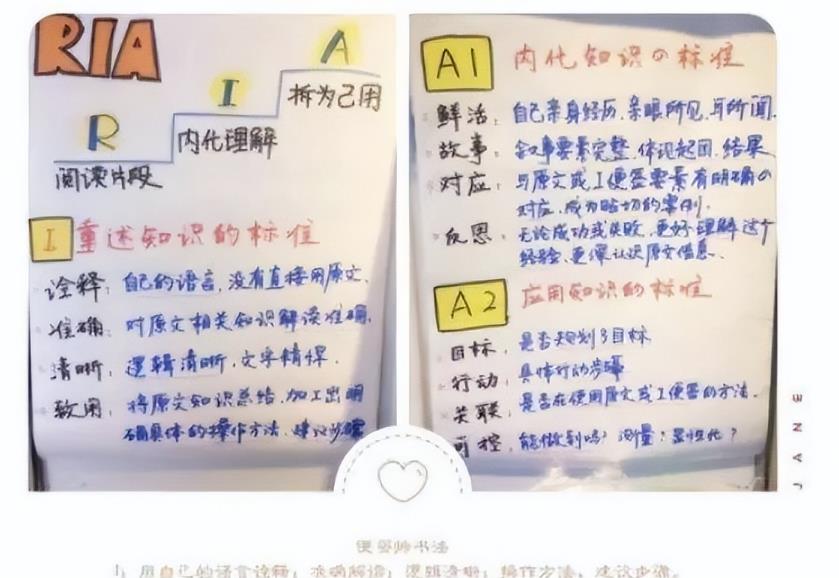 RIA
A
拆为己用
I
内化理解
R
阅读片段
I 重述知识的标准
诠释：自己的语言，没有直接用原文。
准确：对原文相关知识解读准确。
清晰：逻辑清晰，文字精悍。
致用：将原文知识总结，加工出明
确具体的操作方法、建议步骤
A1 内化知识の标准
鲜活：自己亲身经历、亲眼所见、耳所闻。
故事：叙事要素完整，体现起因、结果
对应：与原文或I便签要素有明确の
对应，成为贴切的案例。
反思：无论成功或失败，更好理解这个
经验、更深认识原文信息。
A2 应用知识的标准
目标，是否规划了目标
行动：具体行动步骤
关联，是否在使用原文或I便签的方法。
可控，能做到吗？测量？显性化？
JANE
便签师书法
1、用自己的语言诠释；准确解读；逻辑清晰；操作方法、建议步骤。